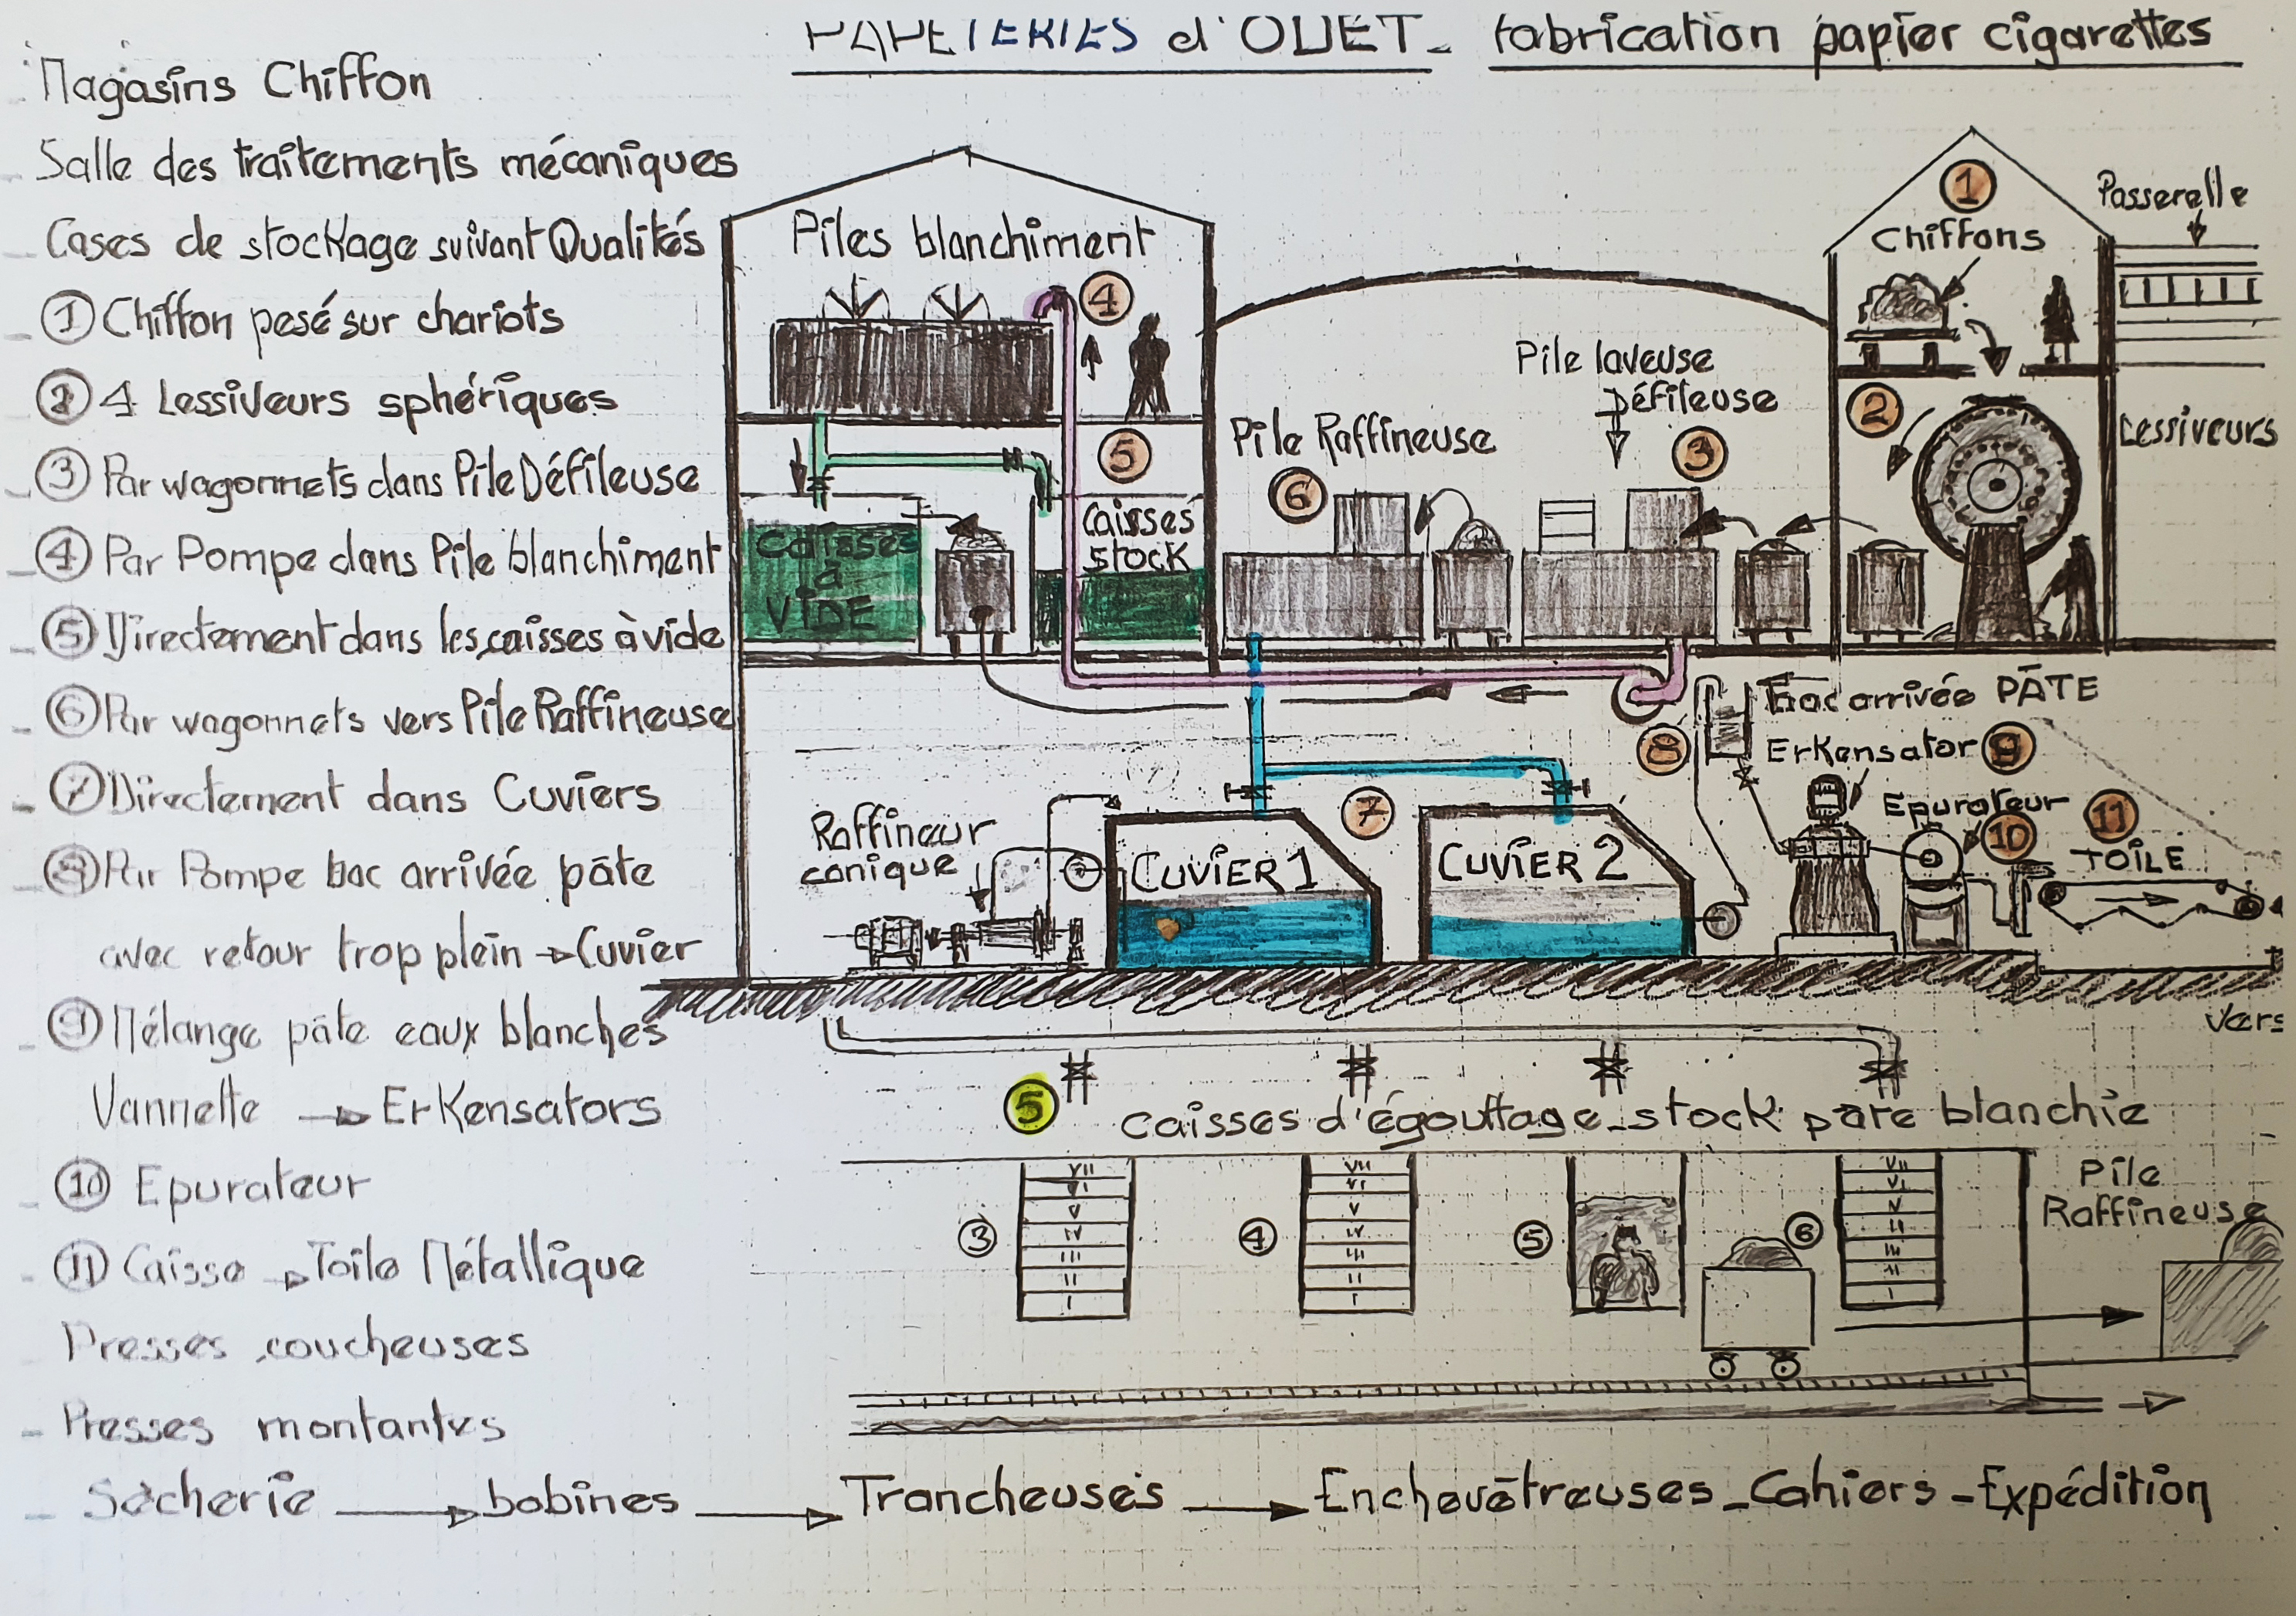 PAPETERIES d'ODET - fabrication papier cigarettes
- Magasins Chiffon
- Salle des traitements mécaniques
- Cases de stockage suivant Qualités
- 1 Chiffon pesé sur chariots
- 2 4 Lessiveurs sphériques
- 3 Par wagonnets dans Pile Défileuse
- 4 Par Pompe dans Pile blanchiment
- 5 Directement dans les caisses à vide
- 6 Par wagonnets vers Pile Raffineuse
- 7 Directement dans Cuviers
- 8 Par Pompe bac arrivée pâte
avec retour trop plein → Cuvier
- 9 Mélange pâte eaux blanches
Vannette → ErKensators
- 10 Epurateur
- 11 Caisse → Toile Métallique
Presses coucheuses
- Presses montantes
- Sècherie → bobines → Trancheuses → Enchevêtreuses - Cahiers - Expédition
Piles blanchiment
4
5
Caisses
à
VIDE
Caisses
stock
1
Chiffons
Passerelle
2
Lessiveurs
Pile laveuse
Défileuse
3
Pile Raffineuse
6
bac arrivée PÂTE
8
ErKensator 9
Epurateur
10
11
TOILE
7
Raffineur
conique
CUVIER 1
CUVIER 2
vers
5
caisses d'égouttage - stock pâte blanchie
3
VII
VI
V
IV
III
II
I
4
VII
VI
V
IV
III
II
I
5
6
VII
VI
V
II
III
II
I
Pile
Raffineuse